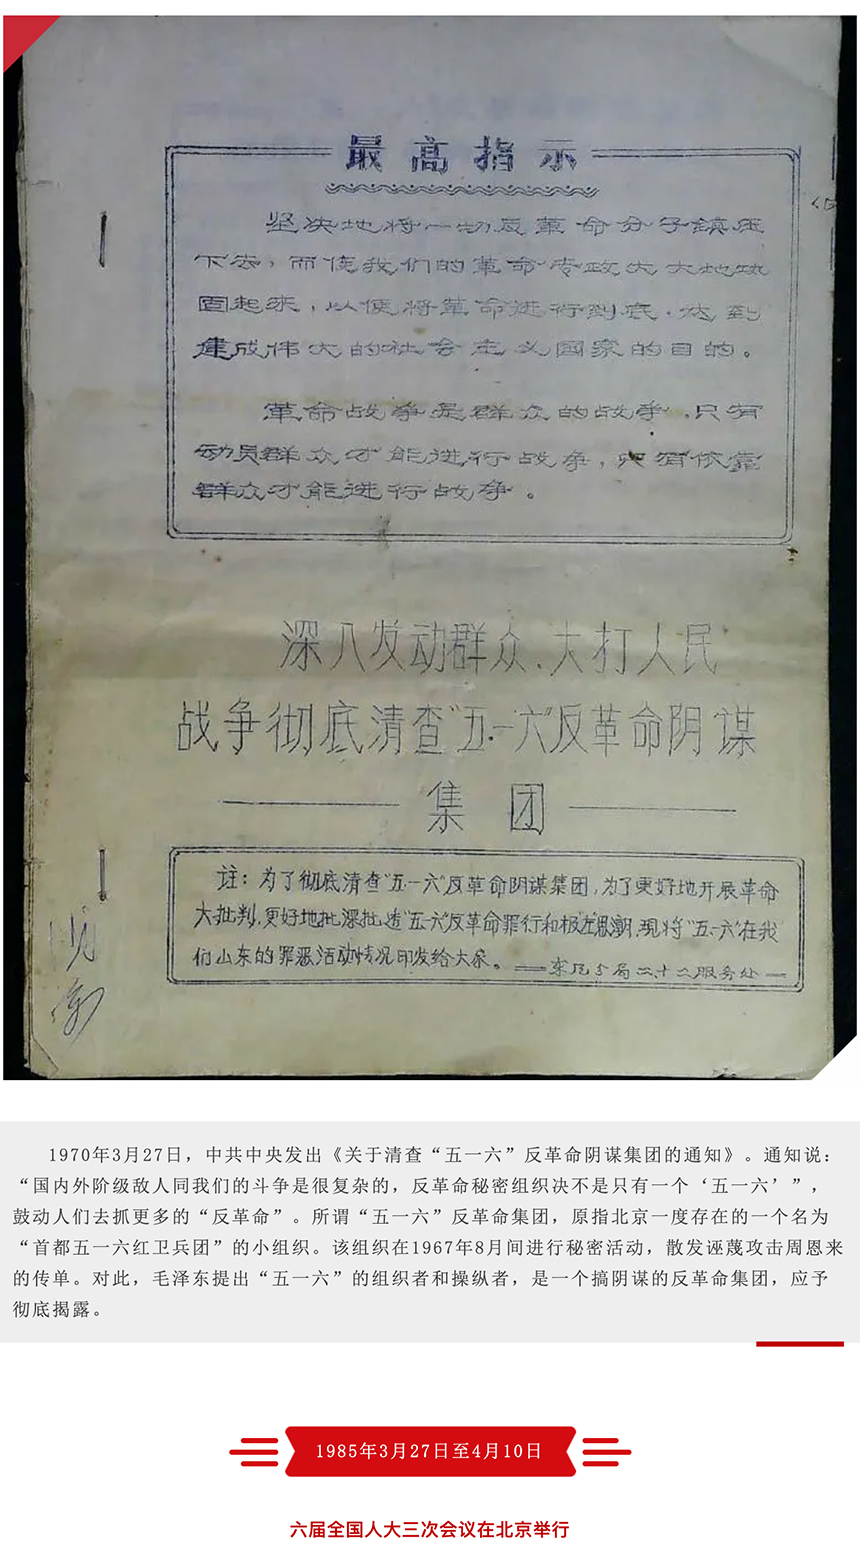 最高指示
坚决地将一切反革命分子鎮压
下去，而使我们的革命专政大大地巩
固起来，以便将革命进行到底，达到
建成伟大的社会主义国家的目的。
革命战争是群众的战争，只有
动员群众才能进行战争，只有依靠
群众才能进行战争。
深入发动群众、大打人民
战争彻底清查“五·一六”反革命阴谋
集团
註：为了彻底清查“五·一六”反革命阴谋集团，为了更好地开展革命
大批判，更好地批深批透“五·一六”反革命罪行和极左思潮，现将“五·一六”在我
们山东的罪恶活动情况印发给大家。
东风分局二十二服务处
1970年3月27日，中共中央发出《关于清查“五一六”反革命阴谋集团的通知》。通知说：
“国内外阶级敌人同我们的斗争是很复杂的，反革命秘密组织决不是只有一个‘五一六’”，
鼓动人们去抓更多的“反革命”。所谓“五一六”反革命集团，原指北京一度存在的一个名为
“首都五一六红卫兵团”的小组织。该组织在1967年8月间进行秘密活动，散发诬蔑攻击周恩来
的传单。对此，毛泽东提出“五一六”的组织者和操纵者，是一个搞阴谋的反革命集团，应予
彻底揭露。
1985年3月27日至4月10日
六届全国人大三次会议在北京举行